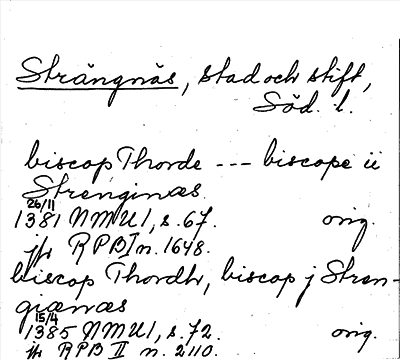 Strängnäs, stad och stift,
Söd. l.
biscop Thorde --- biscope ii
Strenginæs
26/11
1381 NMU I, s. 67. orig.
jfr RPB I n. 1648.
biscop Thordhr, biscop j Stren-
giænæs
15/4
1385 NMU I, s. 72. orig.
jfr RPB II n. 2110.